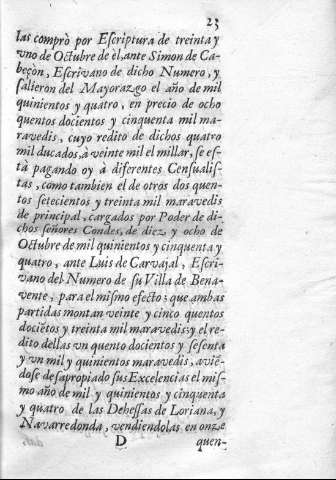 23
las comprò por Escriptura de treinta y
vno de Octubre de èl, ante Simon de Ca-
beçon, Escrivano de dicho Numero, y
salieron del Mayorazgo el año de mil
quinientos y quatro, en precio de ocho
quentos docientos y cinquenta mil ma-
ravedis, cuyo redito de dichos quatro
mil ducados, à veinte mil el millar, se es-
tà pagando oy à diferentes Censualis-
tas, como tambien el de otros dos quen-
tos setecientos y treinta mil maravedis
de principal, cargados por Poder de di-
chos señores Condes, de diez y ocho de
Octubre de mil quinientos y cinquenta y
quatro, ante Luis de Carvajal, Escri-
vano del Numero de su Villa de Bena-
vente, para el mismo efecto; que ambas
partidas montan veinte y cinco quentos
dociẽtos y treinta mil maravedis: y el re-
dito dellas vn quento docientos y sesenta
y vn mil y quinientos maravedis, aviẽ-
dose desapropiado sus Excelencias el mis-
mo año de mil y quinientos y cinquenta
y quatro de las Dehessas de Loriana, y
Navarredonda, vendiendolas en onze
D quen-